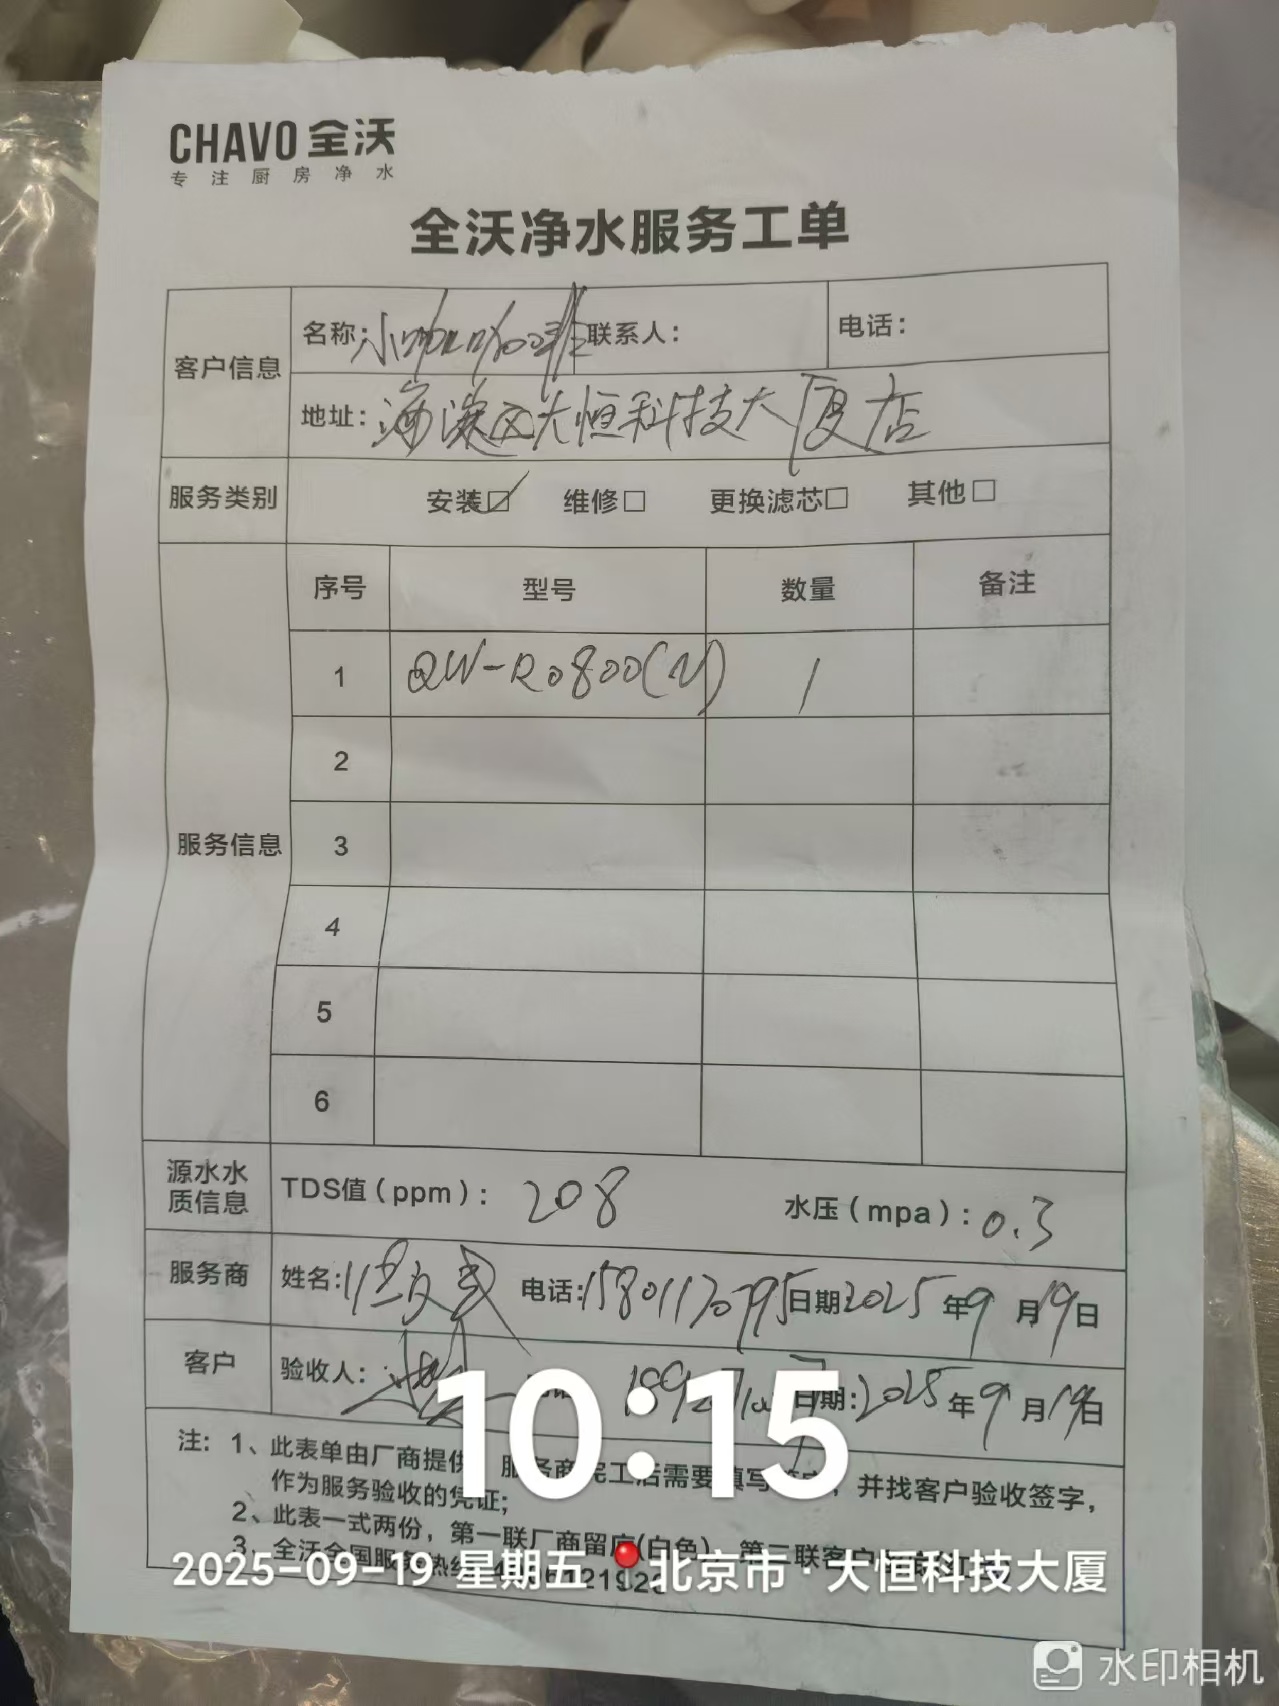 CHAVO 全沃
专注厨房净水
全沃净水服务工单
客户信息
名称: 小咖咖啡 联系人: 电话:
地址: 海淀区大恒科技大厦店
服务类别 安装☑ 维修□ 更换滤芯□ 其他□
服务信息
序号 型号 数量 备注
1 QW-RO800(N) 1
2
3
4
5
6
源水水质信息 TDS值(ppm): 208 水压(mpa): 0.3
服务商 姓名: 电话: 15801170795 日期 2025年9月19日
客户 验收人: 日期: 2025年9月19日
10:15
注: 1、此表单由厂商提供 服务商完工后需要填写 并找客户验收签字,
作为服务验收的凭证;
2、此表一式两份, 第一联厂商留底(白色) 第二联客户
3、全沃全国服务热线
2025-09-19 星期五 北京市·大恒科技大厦
水印相机